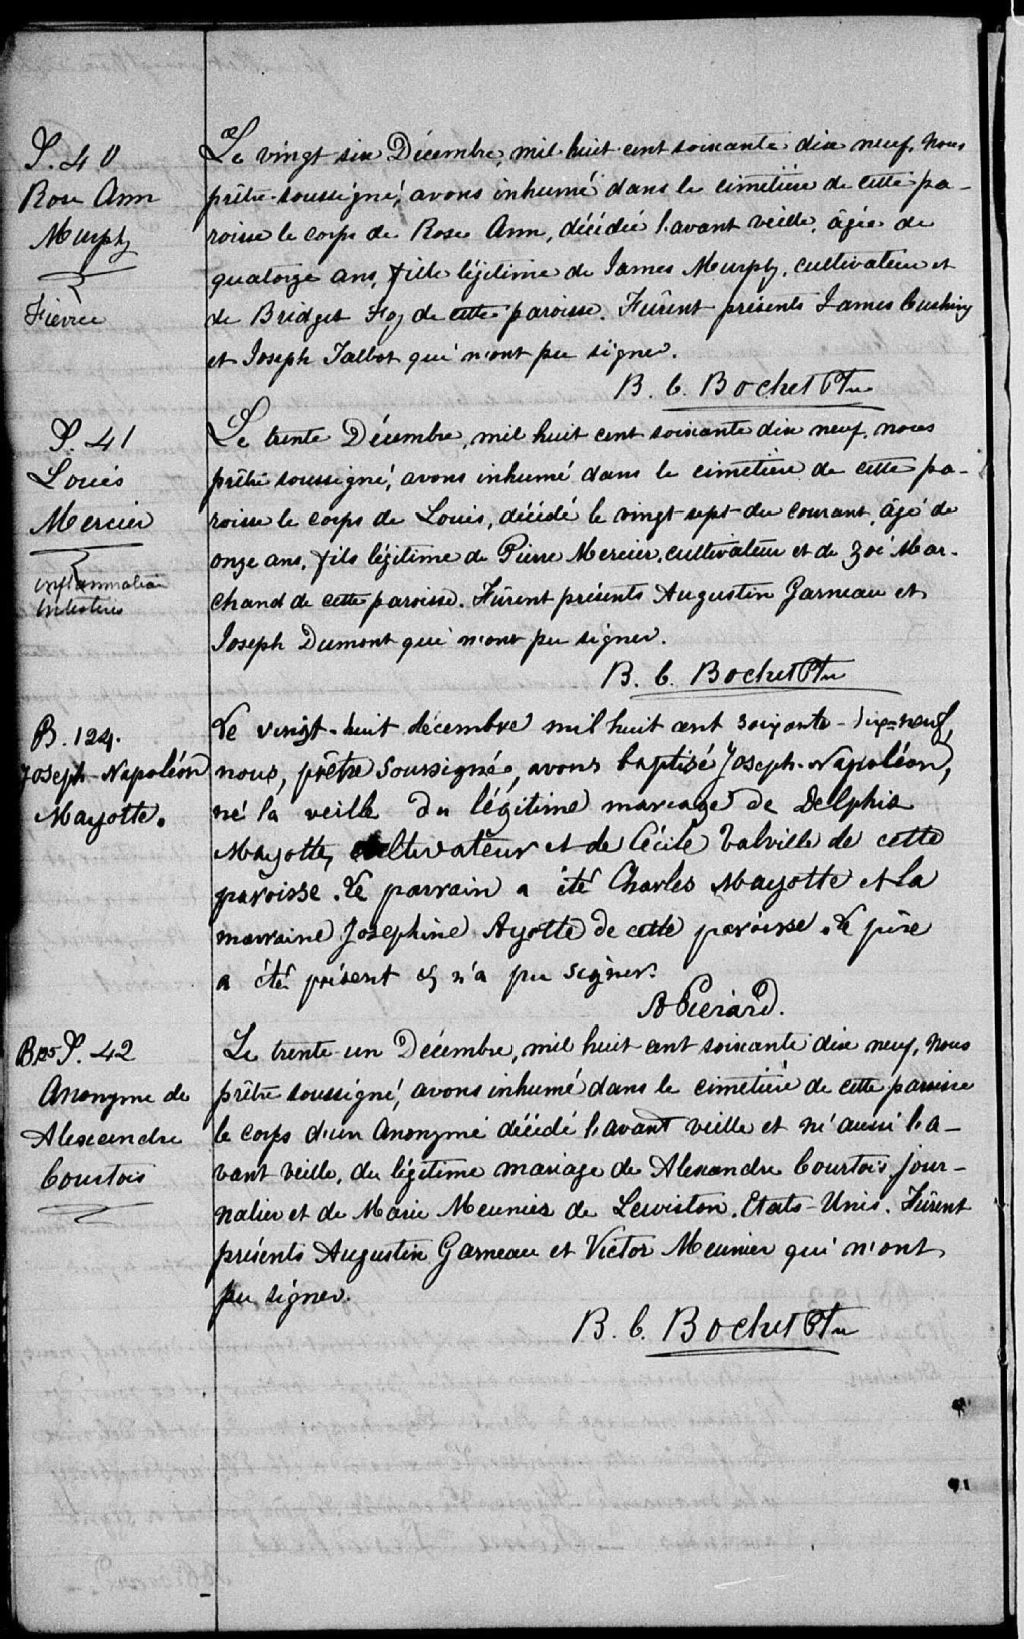 S. 40
Rose Ann
Murphy
Fièvre
Le vingt six Décembre, mil huit cent soixante dix neuf, nous
prêtre soussigné, avons inhumé dans le cimetière de cette pa-
roisse le corps de Rose Ann, décédée l'avant veille, âgée de
quatorze ans, fille légitime de James Murphy, cultivateur et
de Bridget Foy de cette paroisse. Fûrent présents James Cushing
et Joseph Talbot qui n'ont pu signer.
B. C. Bochet Ptre
S. 41
Louis
Mercier
inflammation
intestins
Le trente Décembre, mil huit cent soixante dix neuf, nous
prêtre soussigné, avons inhumé dans le cimetière de cette pa-
roisse le corps de Louis, décédé le vingt-sept du courant, âgé de
onze ans, fils légitime de Pierre Mercier, cultivateur et de Zoé Mar-
chand de cette paroisse. Fûrent présents Augustin Garneau et
Joseph Dumont qui n'ont pu signer.
B. C. Bochet Ptre
B. 124.
Joseph-Napoléon
Mayotte.
Le vingt-huit décembre mil huit cent soixante-dix-neuf,
nous, prêtre soussigné, avons baptisé Joseph-Napoléon,
né la veille du légitime mariage de Delphis
Mayotte, cultivateur et de Cécile Valville de cette
paroisse. Le parrain a été Charles Mayotte et la
marraine Josephine Ayotte de cette paroisse. Le père
a été présent & n'a pu signer.
Piérard.
B 125 S. 42
Anonyme de
Alexandre
Courtois
Le trente-un Décembre, mil huit cent soixante dix neuf, nous
prêtre soussigné, avons inhumé dans le cimetière de cette paroisse
le corps d'un Anonyme décédé l'avant veille et né aussi l'a-
vant veille, du légitime mariage de Alexandre Courtois, jour-
nalier et de Marie Meunier de Lewiston, Etats-Unis. Fûrent
présents Augustin Garneau et Victor Meunier qui n'ont
pu signer.
B. C. Bochet Ptre